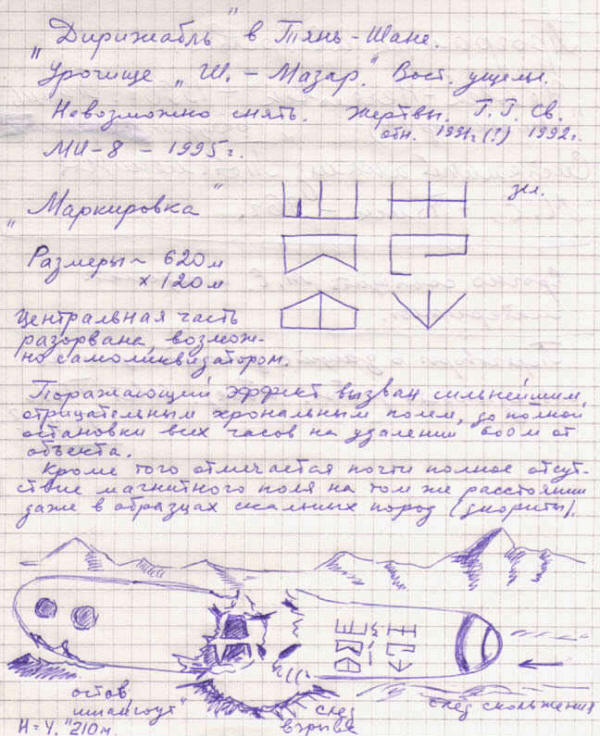 „Дирижабль" в Тянь-Шане.
Урочище „Ш.-Мазар." Вост. ущелье.
Невозможно снять. жертвы. Г.Г. св.
отн. 1991г(?) 1992г.
МИ-8 - 1995г.
„Маркировка"
зел.
Размеры ~ 620м
х 120м
Центральная часть
разорвана, возмож-
но самоликвизатором.
Поражающий эффект вызван сильнейшим,
отрицательным хрональным полем, до полной
остановки всех часов на удалении 600м от
объекта.
Кроме того отмечается почти полное отсут-
ствие магнитного поля на том же расстоянии
даже в образцах скальных пород (диориты).
остов
"шпангоут"
след
взрыва
след скольжения
Н=4.210м.